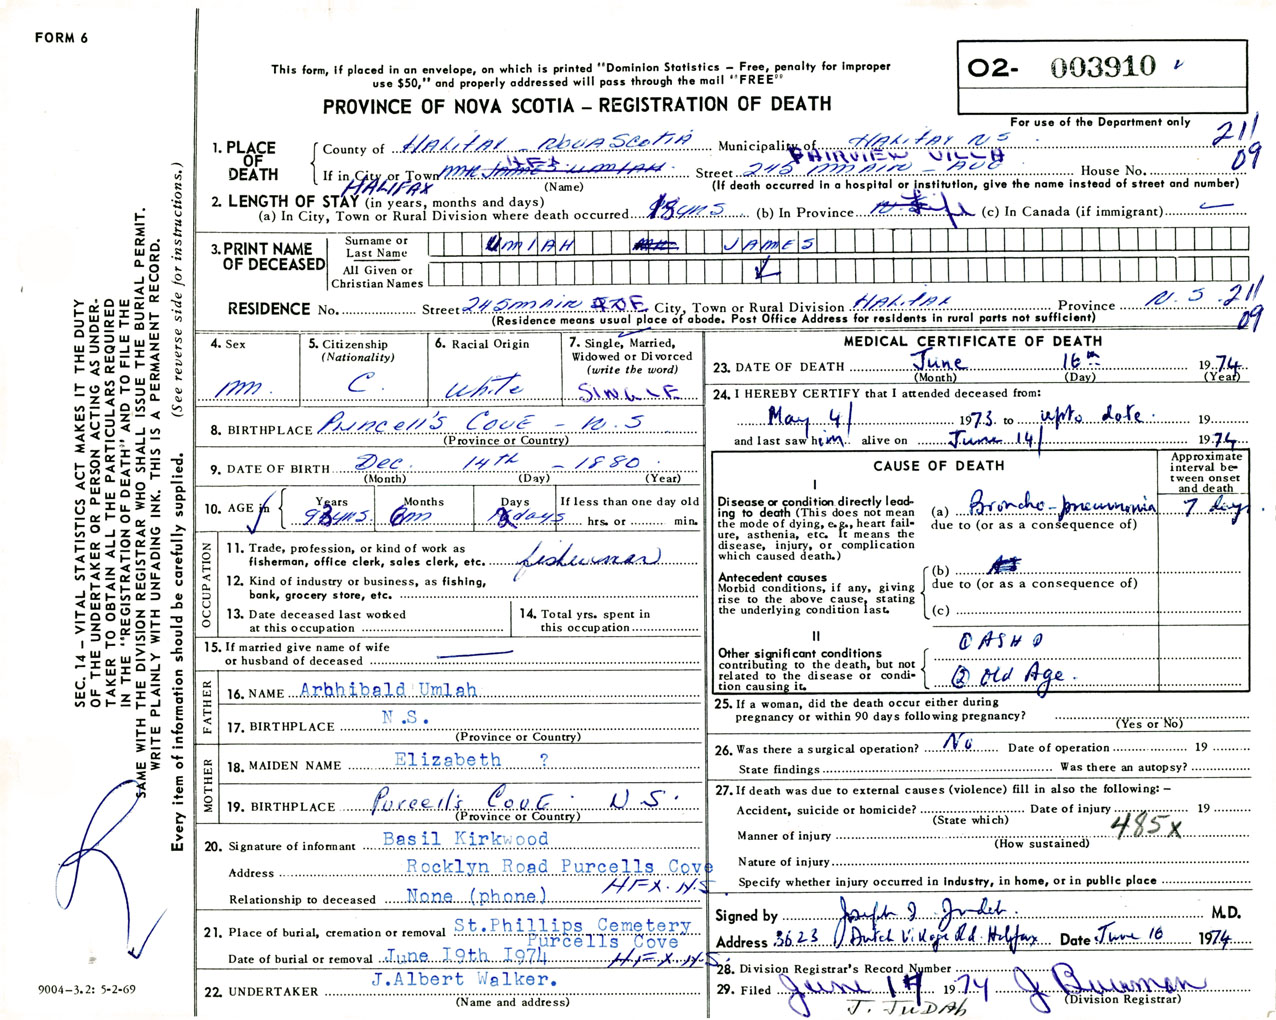 FORM 6
This form, if placed in an envelope, on which is printed "Dominion Statistics – Free, penalty for improper
use $50," and properly addressed will pass through the mail "FREE"
PROVINCE OF NOVA SCOTIA – REGISTRATION OF DEATH
02- 003910
For use of the Department only
211
09
1. PLACE OF DEATH
County of HALIFAX – NOVA SCOTIA Municipality of HALIFAX N S
FAIRVIEW VILLA
If in City or Town MR JAMES UMLAH Street 245 MAIN – AVE House No.
HALIFAX
(Name) (If death occurred in a hospital or institution, give the name instead of street and number)
2. LENGTH OF STAY (in years, months and days)
(a) In City, Town or Rural Division where death occurred yrs (b) In Province Life (c) In Canada (if immigrant)
3. PRINT NAME OF DECEASED
Surname or Last Name UMLAH JAMES
All Given or Christian Names
RESIDENCE No. Street 245 MAIN AVE City, Town or Rural Division HALIFAX Province N. S. 211
09
(Residence means usual place of abode. Post Office Address for residents in rural parts not sufficient)
4. Sex M
5. Citizenship (Nationality) C.
6. Racial Origin White
7. Single, Married, Widowed or Divorced (write the word) SINGLE
8. BIRTHPLACE Purcell's COVE – N. S
(Province or Country)
9. DATE OF BIRTH Dec. 14TH – 1880
(Month) (Day) (Year)
10. AGE in Years 93 yrs Months 6 m Days 2 days If less than one day old hrs. or min.
OCCUPATION
11. Trade, profession, or kind of work as fisherman, office clerk, sales clerk, etc. fisherman
12. Kind of industry or business, as fishing, bank, grocery store, etc.
13. Date deceased last worked at this occupation
14. Total yrs. spent in this occupation
15. If married give name of wife or husband of deceased
FATHER
16. NAME Arbhibald Umlah
17. BIRTHPLACE N.S.
(Province or Country)
MOTHER
18. MAIDEN NAME Elizabeth ?
19. BIRTHPLACE Purcell's COVE N. S.
(Province or Country)
20. Signature of informant Basil Kirkwood
Address Rocklyn Road Purcells Cove
HFX. N.S.
Relationship to deceased None (phone)
21. Place of burial, cremation or removal St.Phillips Cemetery
Purcells Cove
Date of burial or removal June 19th 1974 HFX. N.S.
22. UNDERTAKER J.Albert Walker.
(Name and address)
MEDICAL CERTIFICATE OF DEATH
23. DATE OF DEATH June 16th 1974
(Month) (Day) (Year)
24. I HEREBY CERTIFY that I attended deceased from:
May 4/ 1973 to upto date. 19
and last saw him alive on June 14/ 1974
CAUSE OF DEATH
Approximate interval between onset and death
I
Disease or condition directly leading to death (This does not mean the mode of dying, e.g., heart failure, asthenia, etc. It means the disease, injury, or complication which caused death.)
(a) Broncho-pneumonia 7 days
due to (or as a consequence of)
Antecedent causes
Morbid conditions, if any, giving rise to the above cause, stating the underlying condition last.
(b)
due to (or as a consequence of)
(c)
II
Other significant conditions contributing to the death, but not related to the disease or condition causing it.
① ASHD
② Old Age.
25. If a woman, did the death occur either during pregnancy or within 90 days following pregnancy?
(Yes or No)
26. Was there a surgical operation? No Date of operation 19
State findings Was there an autopsy?
27. If death was due to external causes (violence) fill in also the following: –
Accident, suicide or homicide? Date of injury 19
(State which)
485X
Manner of injury
(How sustained)
Nature of injury
Specify whether injury occurred in industry, in home, or in public place
Signed by Joseph I. Judah. M.D.
Address 3623 Dutch Village Rd. Halifax Date June 16 1974
28. Division Registrar's Record Number
29. Filed June 19 1974 J Bowman
(Division Registrar)
J. JUDAH
SEC. 14 – VITAL STATISTICS ACT MAKES IT THE DUTY
OF THE UNDERTAKER OR PERSON ACTING AS UNDER-
TAKER TO OBTAIN ALL THE PARTICULARS REQUIRED
IN THE "REGISTRATION OF DEATH" AND TO FILE THE
SAME WITH THE DIVISION REGISTRAR WHO SHALL ISSUE THE BURIAL PERMIT.
WRITE PLAINLY WITH UNFADING INK. THIS IS A PERMANENT RECORD.
Every item of information should be carefully supplied. (See reverse side for instructions.)
9004-3.2: 5-2-69